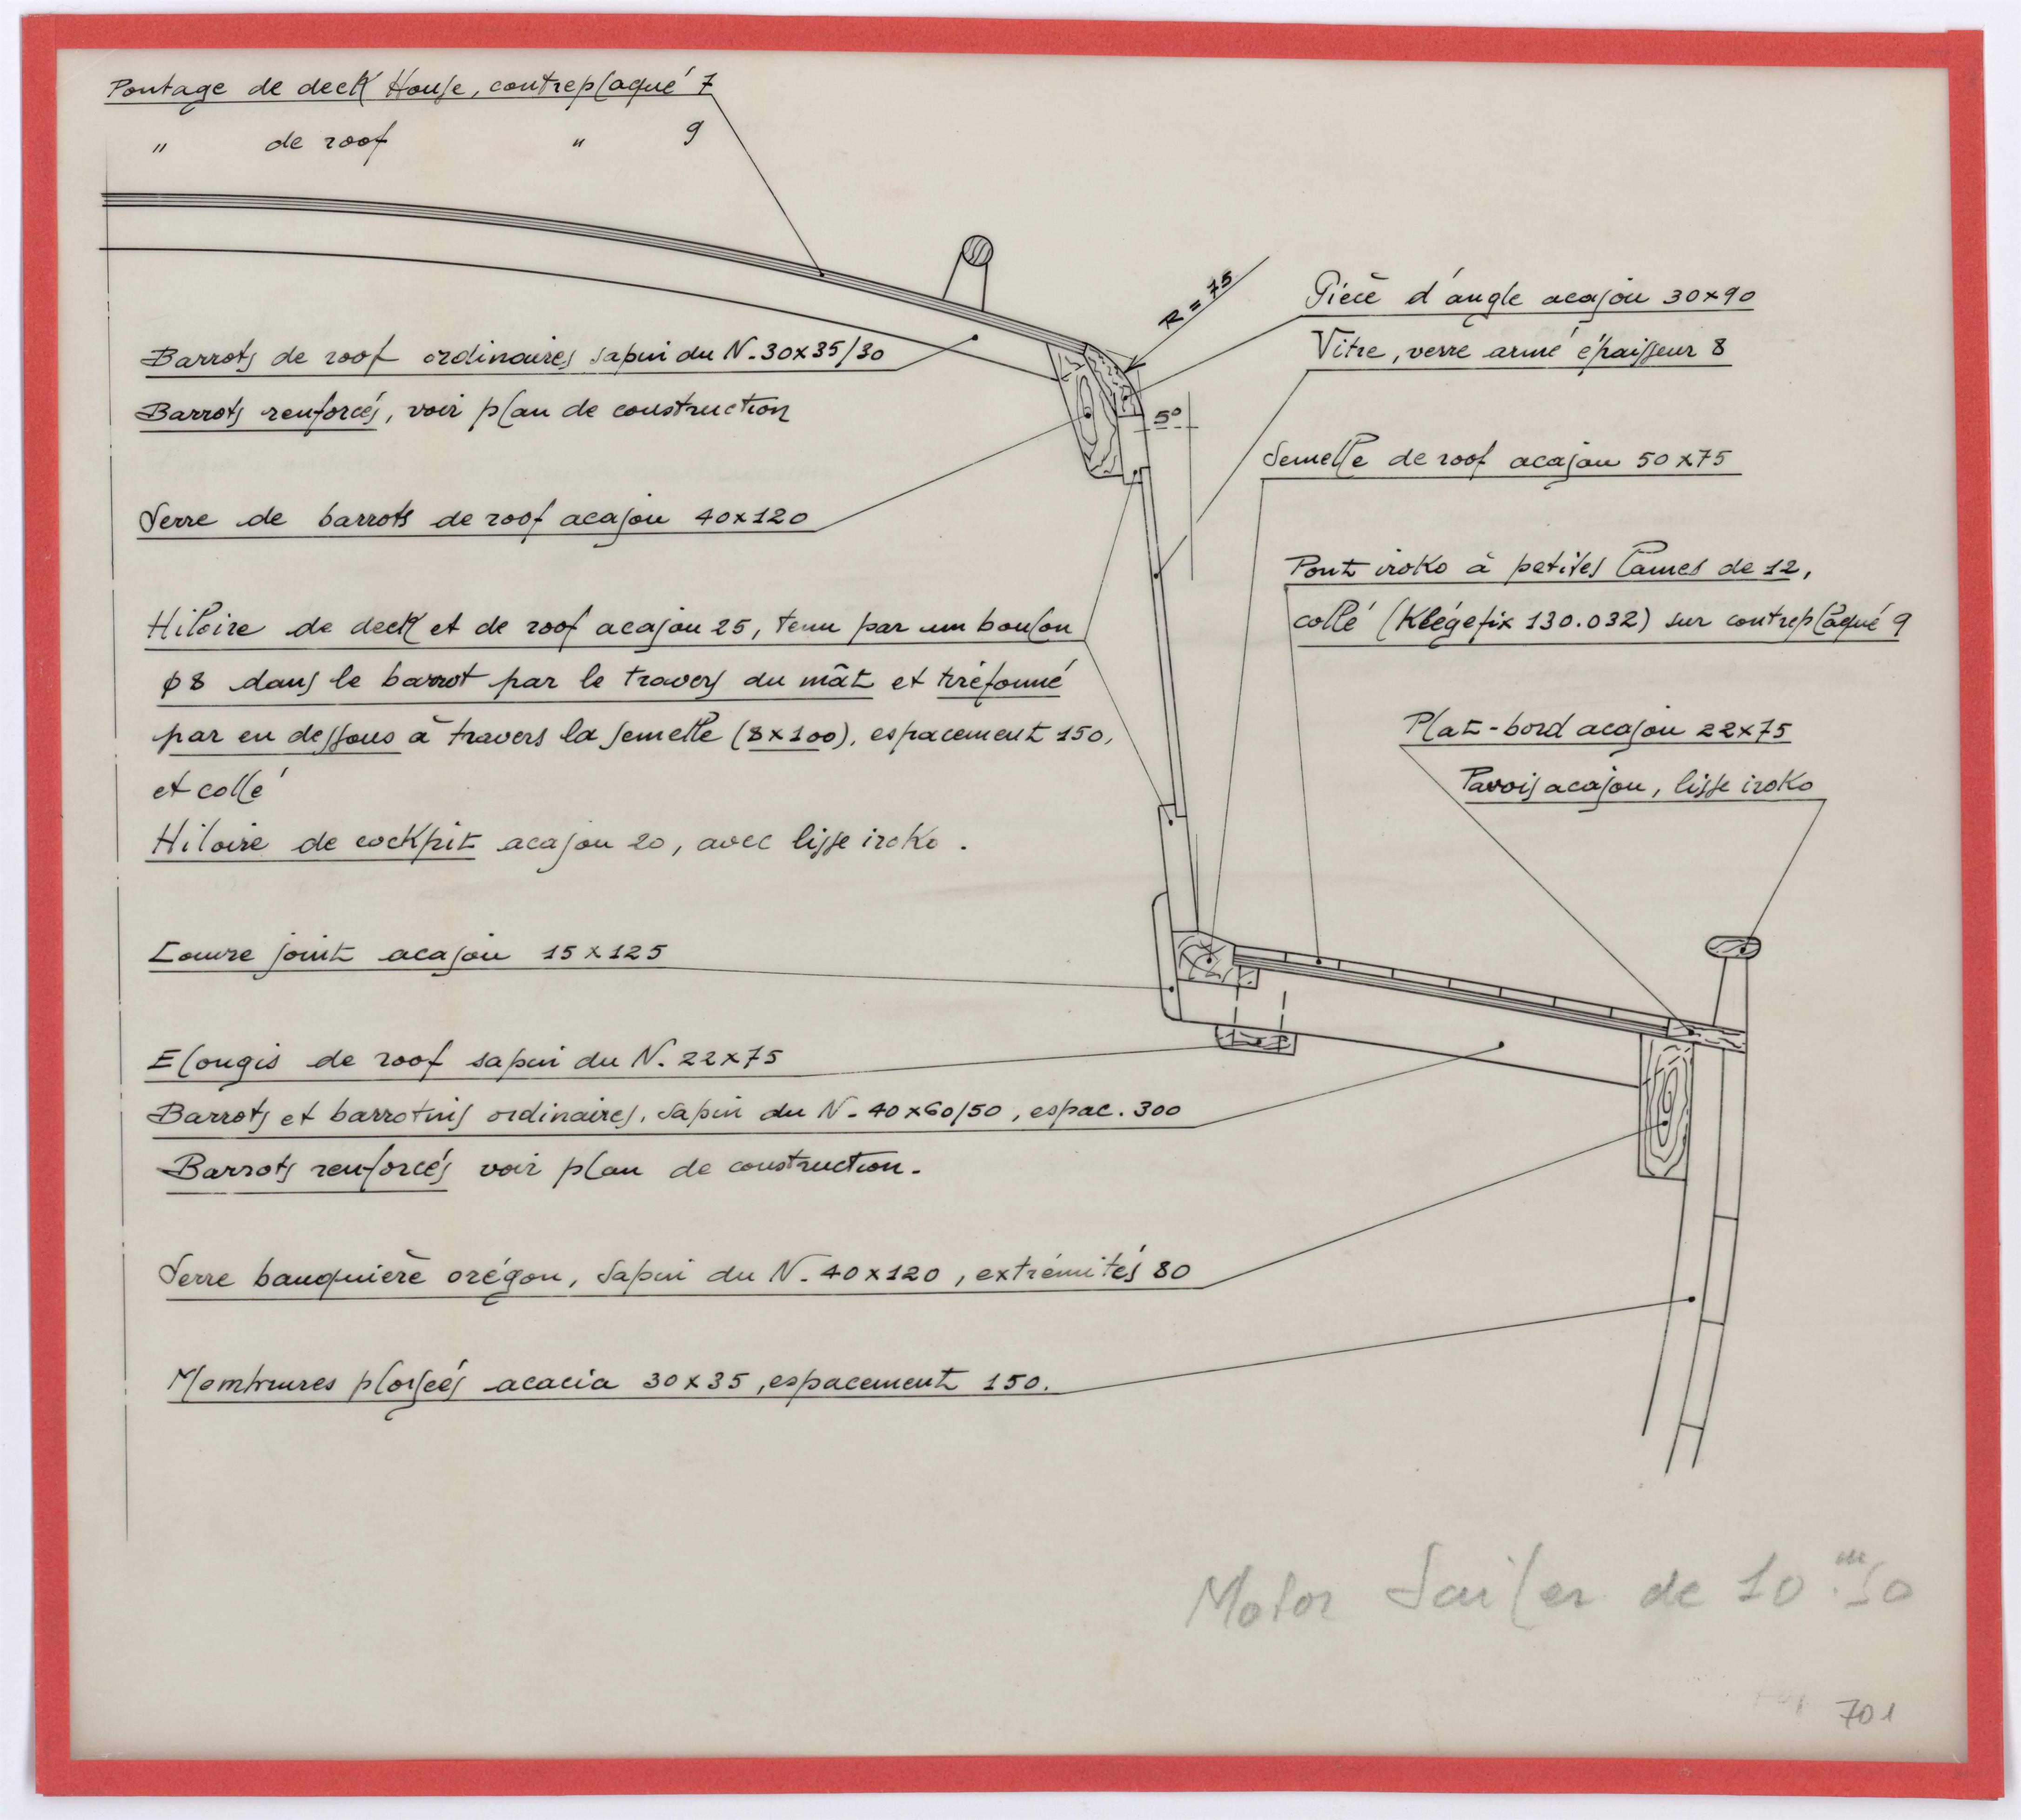 Pontage de deck House, contreplaqué 7
" de roof " 9
R = 75
Pièce d'angle acajou 30x90
Vitre, verre armé épaisseur 8
Barrots de roof ordinaires sapin du N. 30x35/30
Barrots renforcés, voir plan de construction
5°
Semelle de roof acajou 50x75
Serre de barrots de roof acajou 40x120
Pont iroko à petites lames de 12,
collé (Klégéfix 130.032) sur contreplaqué 9
Hiloire de deck et de roof acajou 25, tenu par un boulon
φ8 dans le barrot par le travers du mât et tirefonné
par en dessous à travers la semelle (8x100), espacement 150,
et collé
Hiloire de cockpit acajou 20, avec lisse iroko.
Plat-bord acajou 22x75
Pavois acajou, lisse iroko
Couvre joint acajou 15x125
Elongis de roof sapin du N. 22x75
Barrots et barrotins ordinaires, sapin du N. 40x60/50, espac. 300
Barrots renforcés voir plan de construction.
Serre bauquière orégon, sapin du N. 40x120, extrémités 80
Membrures ployées acacia 30x35, espacement 150.
Motor Sailer de 10m.50
701